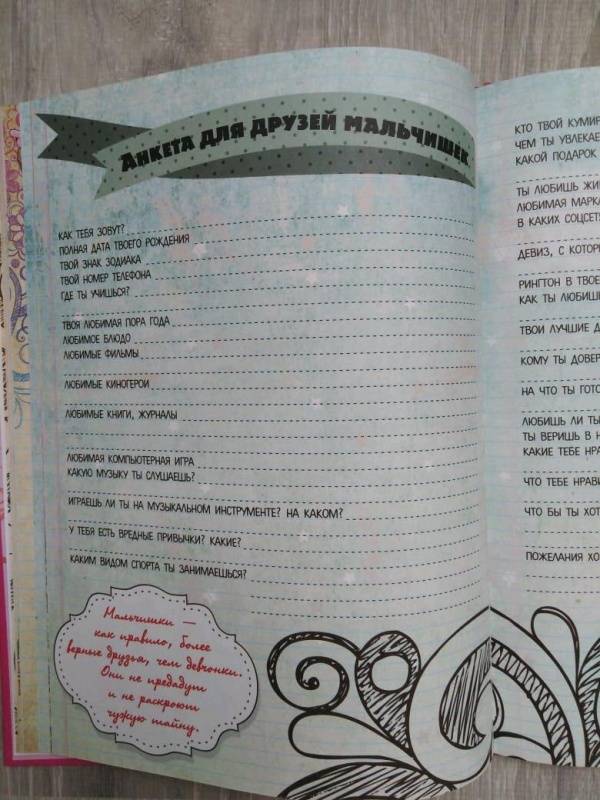 Анкета для друзей мальчишек
КАК ТЕБЯ ЗОВУТ?
ПОЛНАЯ ДАТА ТВОЕГО РОЖДЕНИЯ
ТВОЙ ЗНАК ЗОДИАКА
ТВОЙ НОМЕР ТЕЛЕФОНА
ГДЕ ТЫ УЧИШЬСЯ?
ТВОЯ ЛЮБИМАЯ ПОРА ГОДА
ЛЮБИМОЕ БЛЮДО
ЛЮБИМЫЕ ФИЛЬМЫ
ЛЮБИМЫЕ КИНОГЕРОИ
ЛЮБИМЫЕ КНИГИ, ЖУРНАЛЫ
ЛЮБИМАЯ КОМПЬЮТЕРНАЯ ИГРА
КАКУЮ МУЗЫКУ ТЫ СЛУШАЕШЬ?
ИГРАЕШЬ ЛИ ТЫ НА МУЗЫКАЛЬНОМ ИНСТРУМЕНТЕ? НА КАКОМ?
У ТЕБЯ ЕСТЬ ВРЕДНЫЕ ПРИВЫЧКИ? КАКИЕ?
КАКИМ ВИДОМ СПОРТА ТЫ ЗАНИМАЕШЬСЯ?
Мальчишки —
как правило, более
верные друзья, чем девчонки.
Они не предадут
и не раскроют
чужую тайну.
КТО ТВОЙ КУМИР
ЧЕМ ТЫ УВЛЕКАЕ
КАКОЙ ПОДАРОК
ТЫ ЛЮБИШЬ ЖИ
ЛЮБИМАЯ МАРКА
В КАКИХ СОЦСЕТЯ
ДЕВИЗ, С КОТОРЫ
РИНГТОН В ТВОЕ
КАК ТЫ ЛЮБИШЬ
ТВОИ ЛУЧШИЕ Д
КОМУ ТЫ ДОВЕР
НА ЧТО ТЫ ГОТО
ЛЮБИШЬ ЛИ ТЫ
ТЫ ВЕРИШЬ В Н
КАКИЕ ТЕБЕ НРА
ЧТО ТЕБЕ НРАВИ
ЧТО БЫ ТЫ ХОТ
ПОЖЕЛАНИЯ ХО